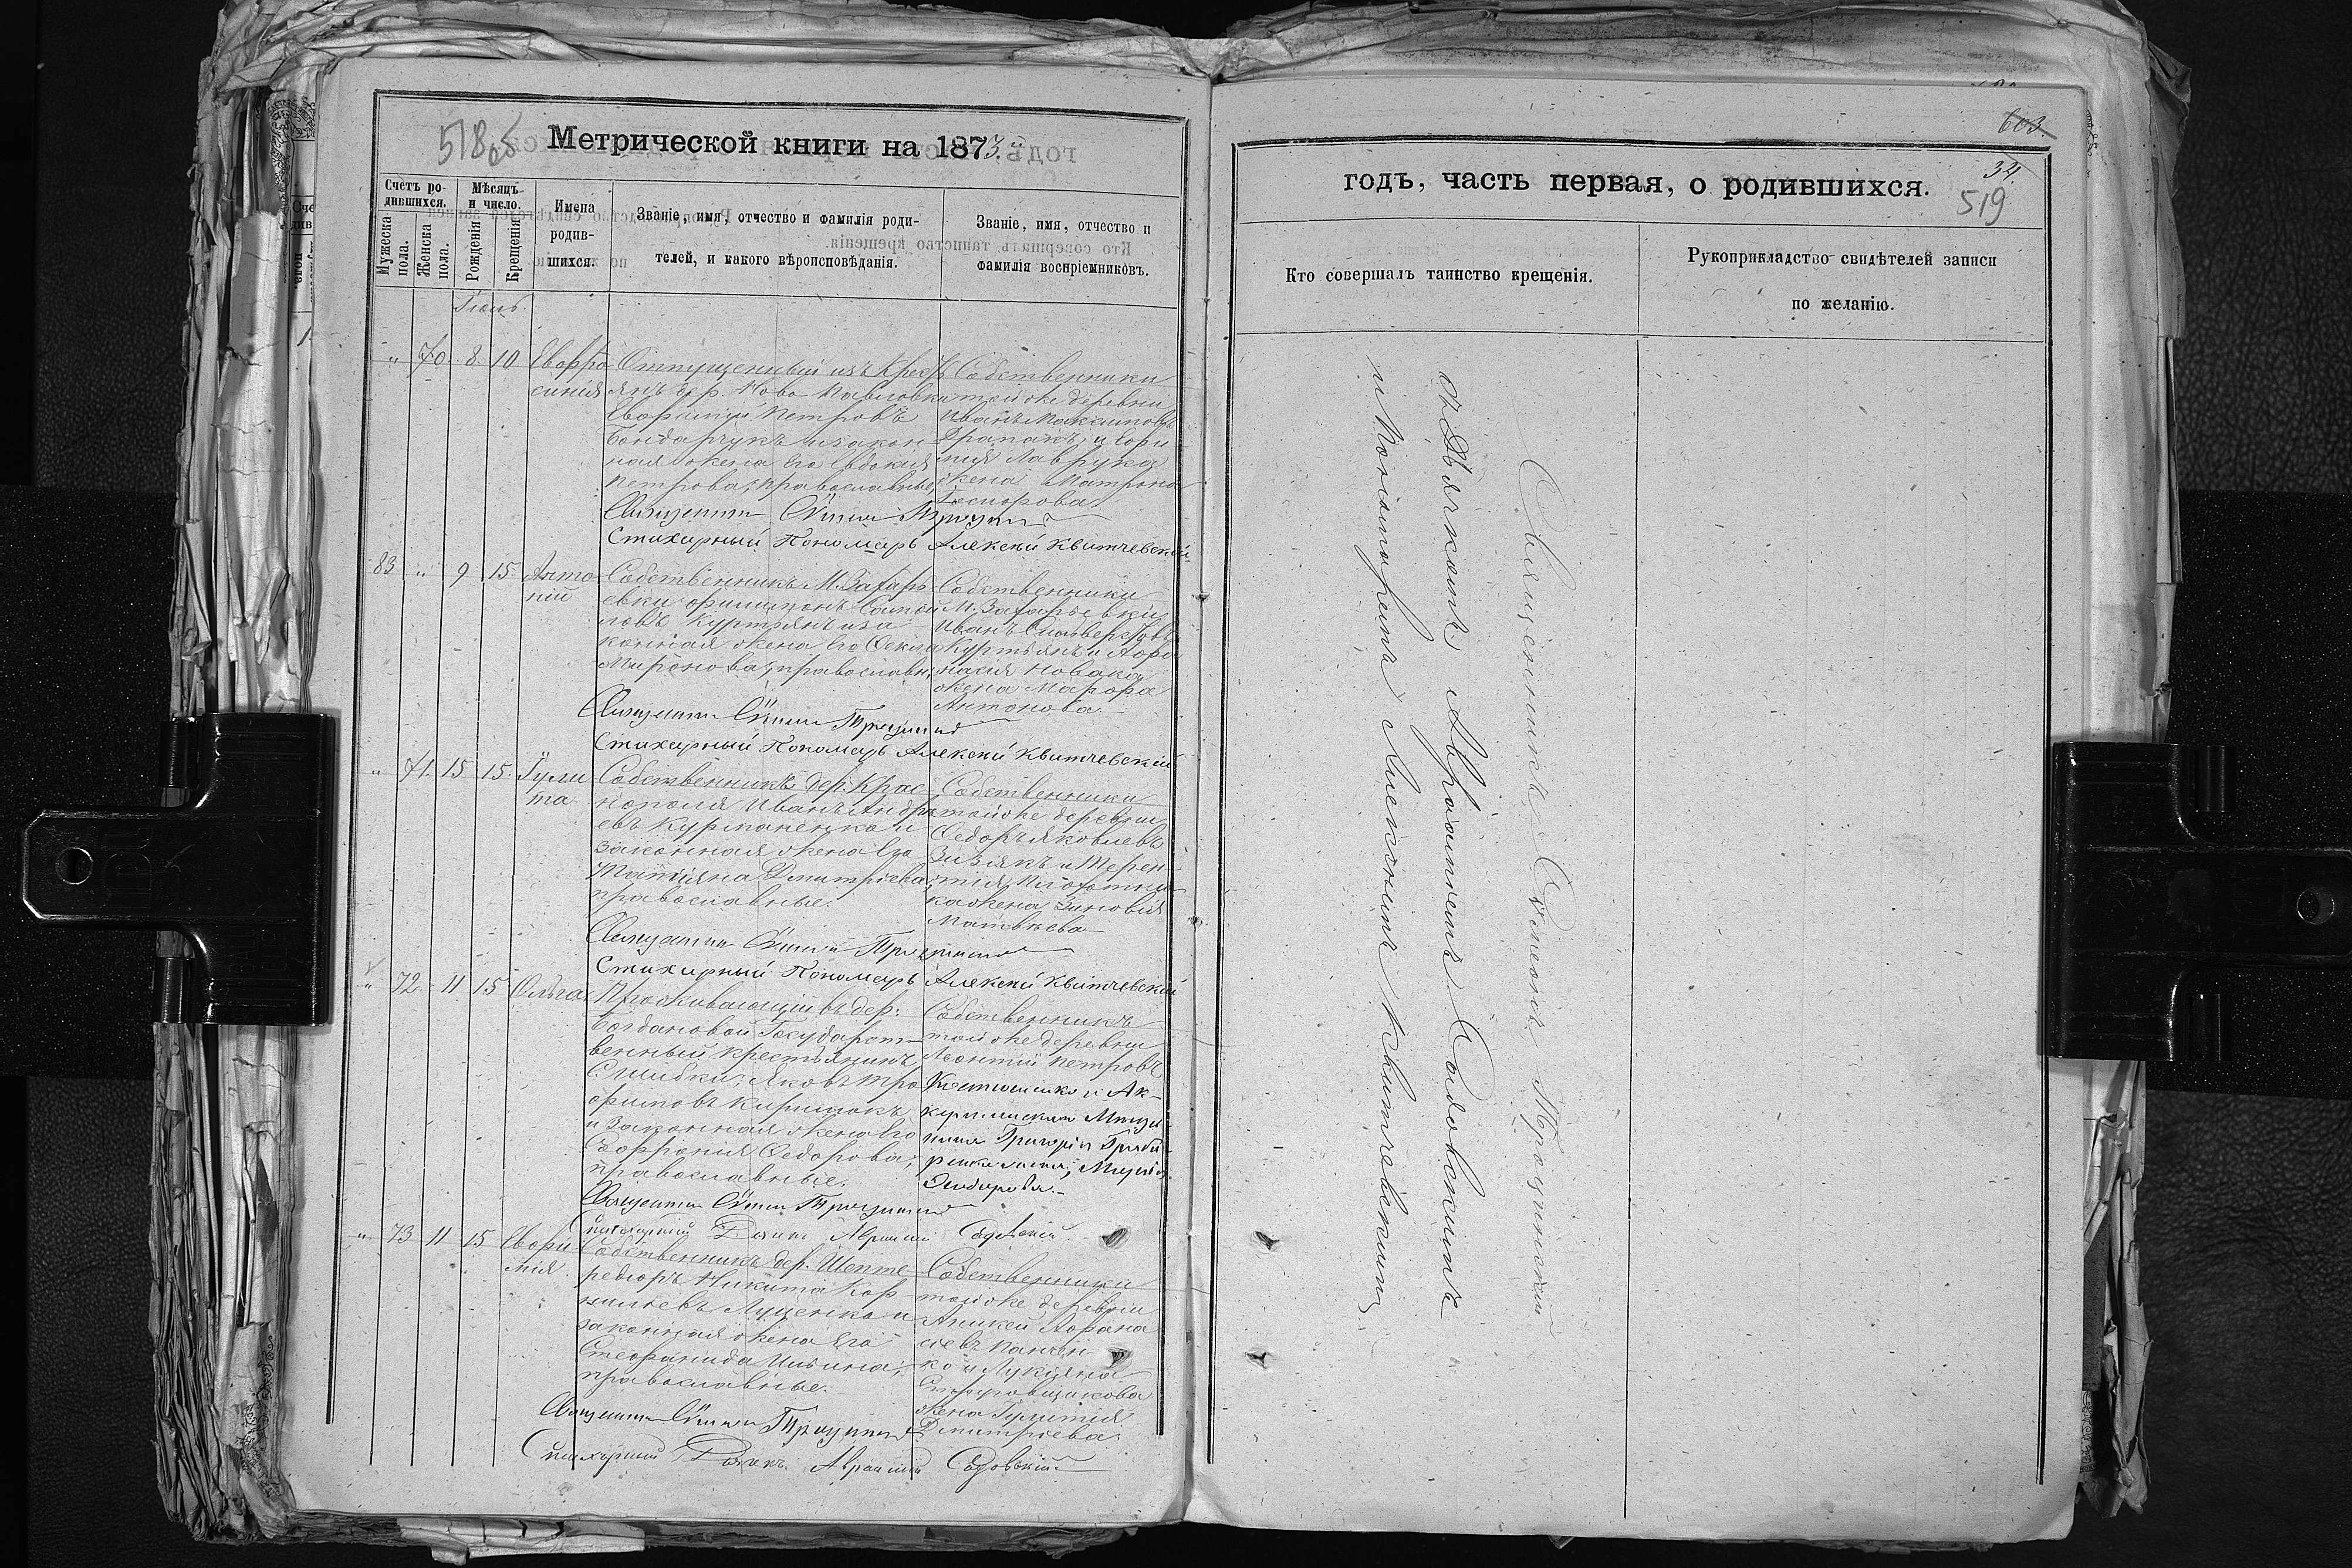 518 об
Метрической книги на 1873.
Счетъ родившихся.
Мужеска пола.
Женска пола.
Мѣсяцъ и число.
Рожденія
Крещенія
Имена родившихся.
Званіе, имя, отчество и фамилія родителей, и какого вѣроисповѣданія.
Званіе, имя, отчество и фамилія воспріемниковъ.
Іюль.
" 70. 8. 10. Евфро
синія
Отпущенный изъ крестъ
янъ дер. Ново Павловки
Евфимій Петровъ
Бондарчукъ и закон
ная жена его Евдокія
Петрова, православные,
Собственники
той же деревни
Иванъ Максимовъ
Драпакъ и Ефи
мія Лаврука
жена Матрона
Священникъ Симеонъ Троцинскій
Стихарный Пономарь Алексій Квитчевскій
83 " 9 15 Анто
ній
Собственникъ М. Захарь
евки Филимонъ Самой
ловъ Куртьянъ и за
конная жена его Фекла
Миронова, православн.
Собственники
М. Захарьевки
Иванъ Сильверстовъ
Куртьянъ и Афа
насія Новака
жена Марфа
Антонова.
Священникъ Симеонъ Троцинскій
Стихарный Пономарь Алексій Квитчевскій
" 71. 15 15. Іули
та
Собственникъ дер. Крас
нополя Иванъ Андре
евъ Курманенко и
законная жена его
Татіяна Дмитріева
православные.
Собственники
той же деревни
Федоръ Яковлевъ
Зизякъ и Терен
тія Плохотни
ка жена Зиновія
Матвѣева
Священникъ Симеонъ Троцинскій
Стихарный Пономарь Алексій Квитчевскій
" 72. 11 15 Ольга
Проживающій въ дер:
Богдановой Государст
венный крестьянинъ
Яковъ Тро
фимовъ Кирилюкъ
и законная жена его
Софронія Федорова,
православные.
Собственникъ
той же деревни
Леонтій Петровъ
и Ак
керманскаго Мѣща
нина Григорія
Священникъ Симеонъ Троцинскій
Стихарный Дьякъ Авраамій Садовскій
" 73 11 15 Евфи
мія.
Собственникъ дер. Шепте
редоръ Никита Кор
нильевъ Луценко и
законная жена его
Стефанида Ильина,
православные.
Собственники
той же деревни
Аникей Афана
сіевъ Панчен
ко и Лукіяна
жена
Дмитріева.
Священникъ Симеонъ Троцинскій
Стихарный Дьякъ Авраамій Садовскій
603.
34.
519
годъ, часть первая, о родившихся.
Кто совершалъ таинство крещенія.
Рукоприкладство свидѣтелей записи
по желанію.
Священникъ Симеонъ Троцинскій
съ Дьячкомъ Авраамiемъ Садовскимъ
и Пономаремъ Алексіемъ Квитчевскимъ